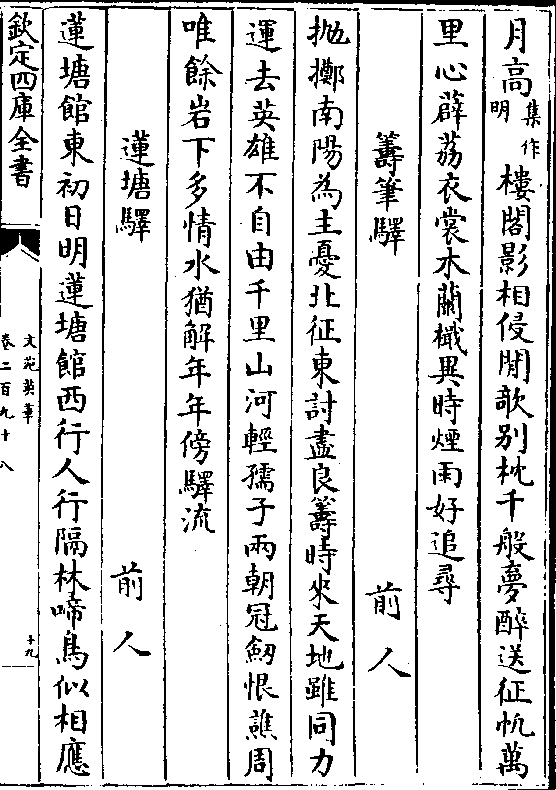 月高集作明樓閣影相侵閒歌别枕千般夢醉送征帆萬
里心薜荔衣裳木蘭檝異時煙雨好追尋
籌筆驛 前人
抛擲南陽為主憂北征東討盡良籌時來天地雖同力
運去英雄不自由千里山河輕孺子兩朝冠劒恨譙周
唯餘岩下多情水猶解年年傍驛流
蓮塘驛 前人
蓮塘館東初日明蓮塘館西行人行隔林啼鳥似相應
欽定四庫全書
文苑英華
卷二百九十八
十九